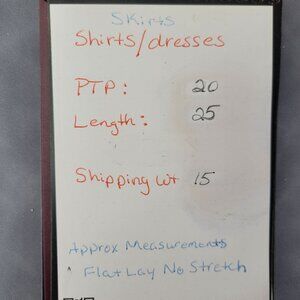 Skirts
Shirts/dresses
PTP: 20
Length: 25
Shipping wt 15
Approx Measurements
Flat Lay No Stretch